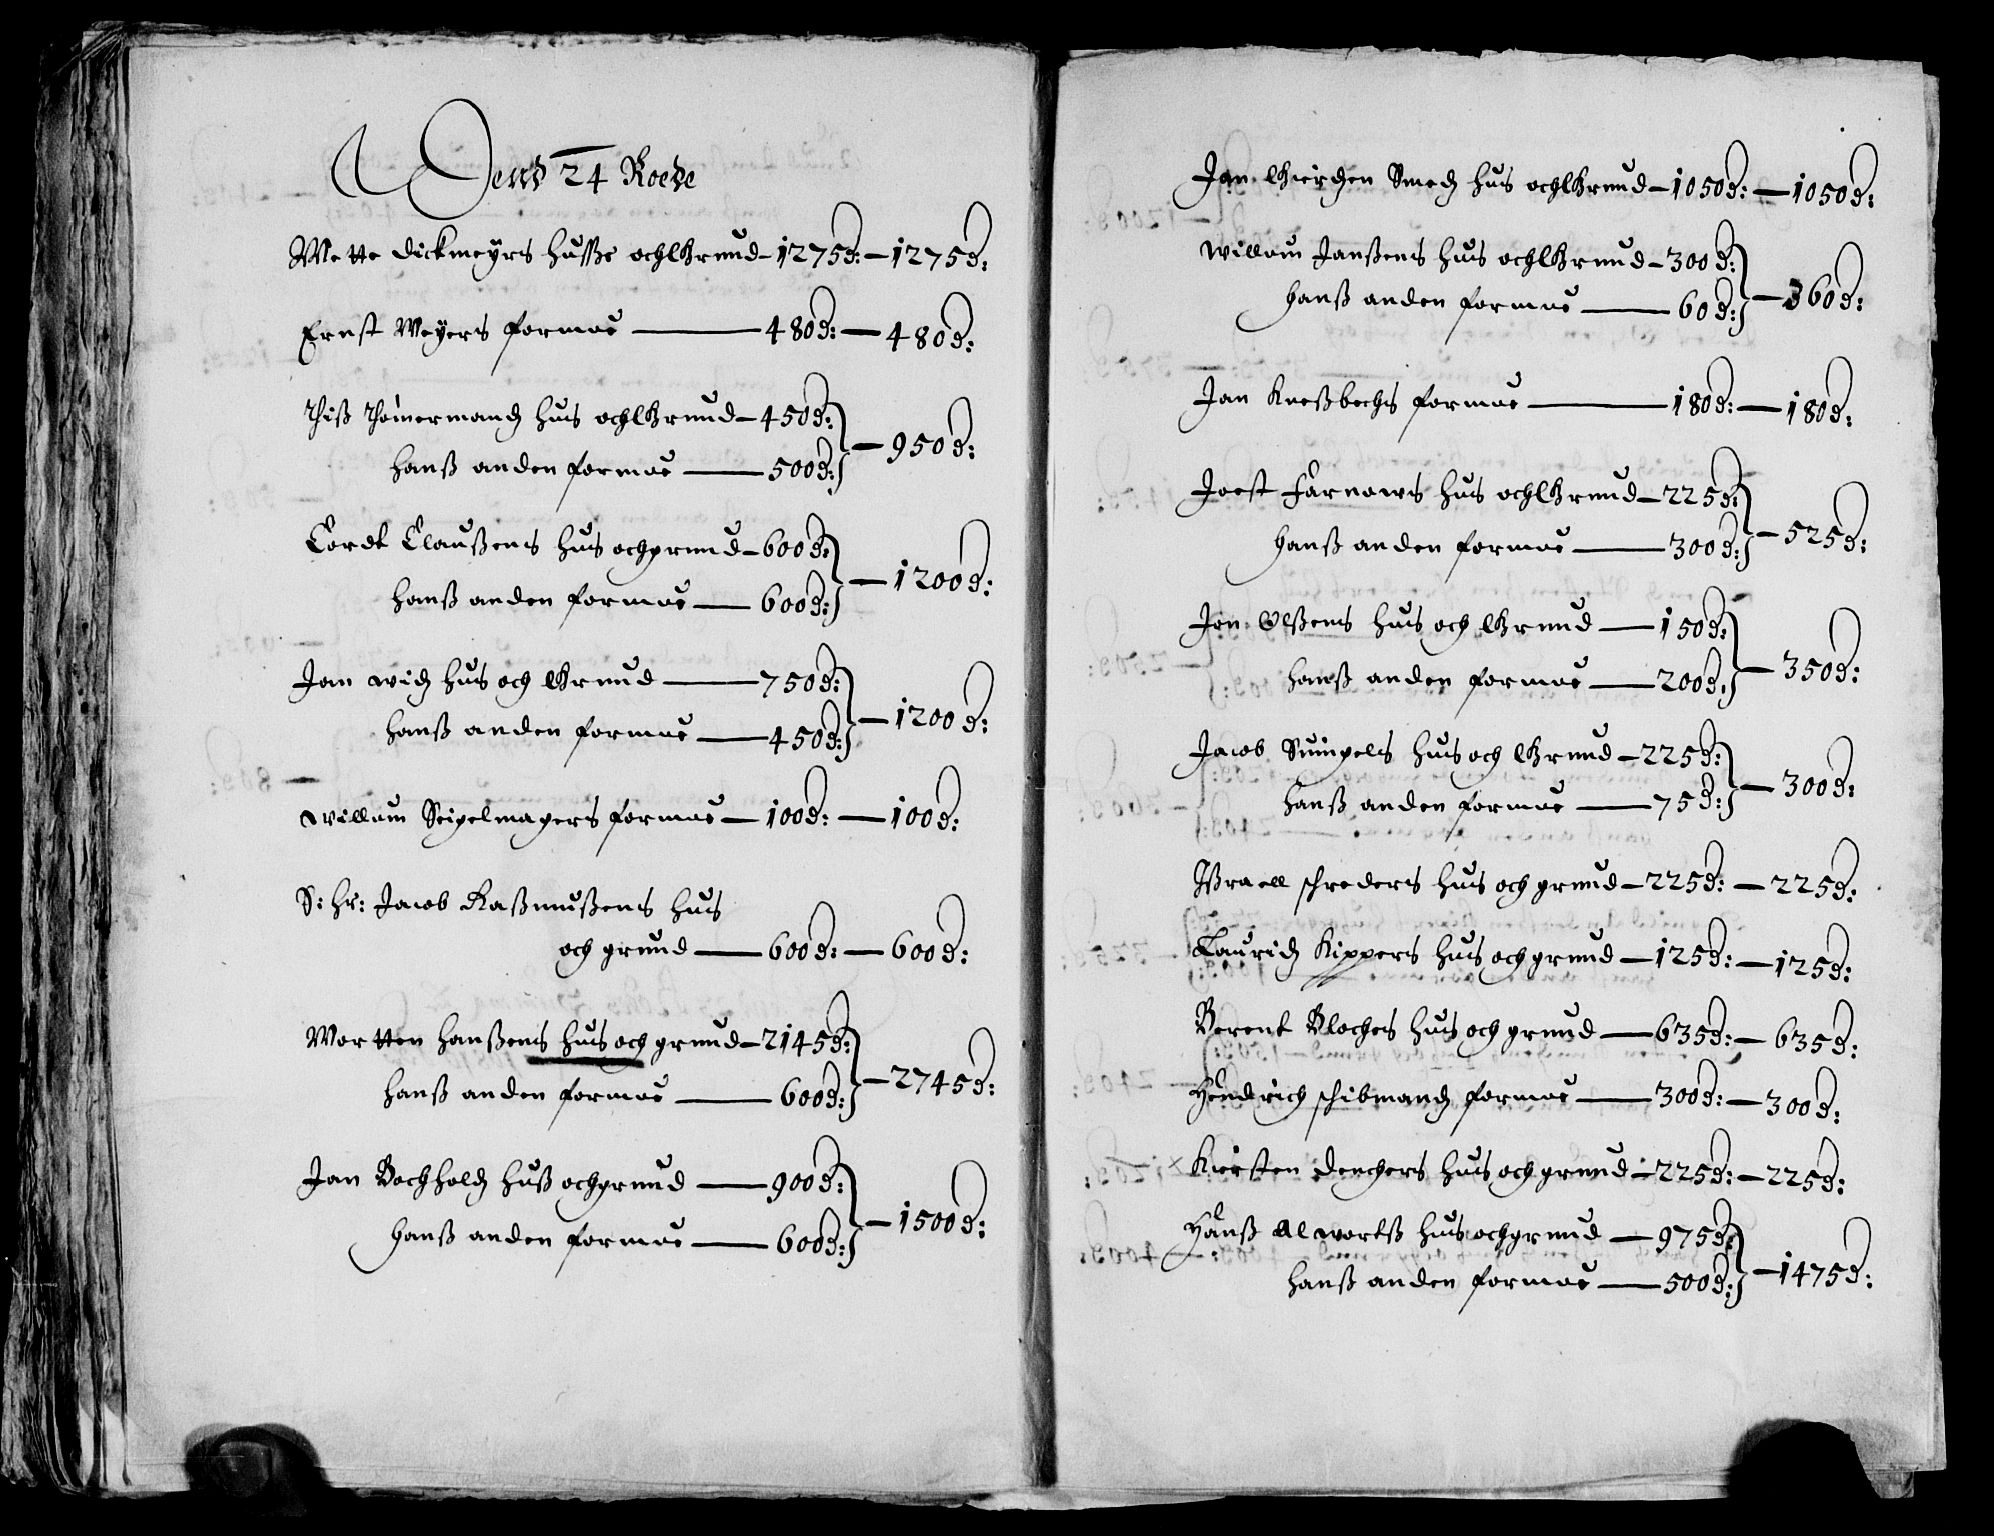 Dend 24 Roede
Mette Dickmeyers Husse och Grund - 1275 d: - 1275 d:
Ernst Meyers formue — 480 d: — 480 d:
Thiß Thömermands Hus och Grund - 450 d:
Hanß anden formue — 500 d: } — 950 d:
Cordt Claußens Hus och grund - 600 d:
Hanß anden formue — 600 d: } — 1200 d:
Jan wid Hus och Grund — 750 d:
Hanß anden formue — 450 d: } — 1200 d:
Willum Seigelmagers formue — 100 d: — 100 d:
S: Hr: Jacob Raßmußens Hus
och grund — 600 d: — 600 d:
Mortten Hanßens Hus och grund - 2145 d:
Hanß anden formue — 600 d: } — 2745 d:
Jan Bochhold Huß och grund — 900 d:
Hanß anden formue — 600 d: } — 1500 d:
Jan Smed Hus och Grund - 1050 d: — 1050 d:
Willum Janßens Hus och Grund - 300 d:
Hanß anden formue — 60 d: } — 360 d:
Jan Kneßbechs formue — 180 d: — 180 d:
Joest Farnows Hus och Grund - 225 d:
Hanß anden formue — 300 d: } — 525 d:
Jon Olßens Hus och Grund — 150 d:
Hanß anden formue — 200 d: } — 350 d:
Jacob Suingels Hus och Grund - 225 d:
Hanß anden formue — 75 d: } — 300 d:
Ißraell schreders Hus och grund - 225 d: — 225 d:
Laurids Kippers Hus och grund — 125 d: — 125 d:
Berent Bloches Hus och grund — 635 d: — 635 d:
Hendrich schibmands formue — 300 d: — 300 d:
Kiersten Denchers Hus och grund - 225 d: — 225 d:
Hanß Alwortß Hus och grund — 975 d:
Hanß anden formue — 500 d: } — 1475 d: